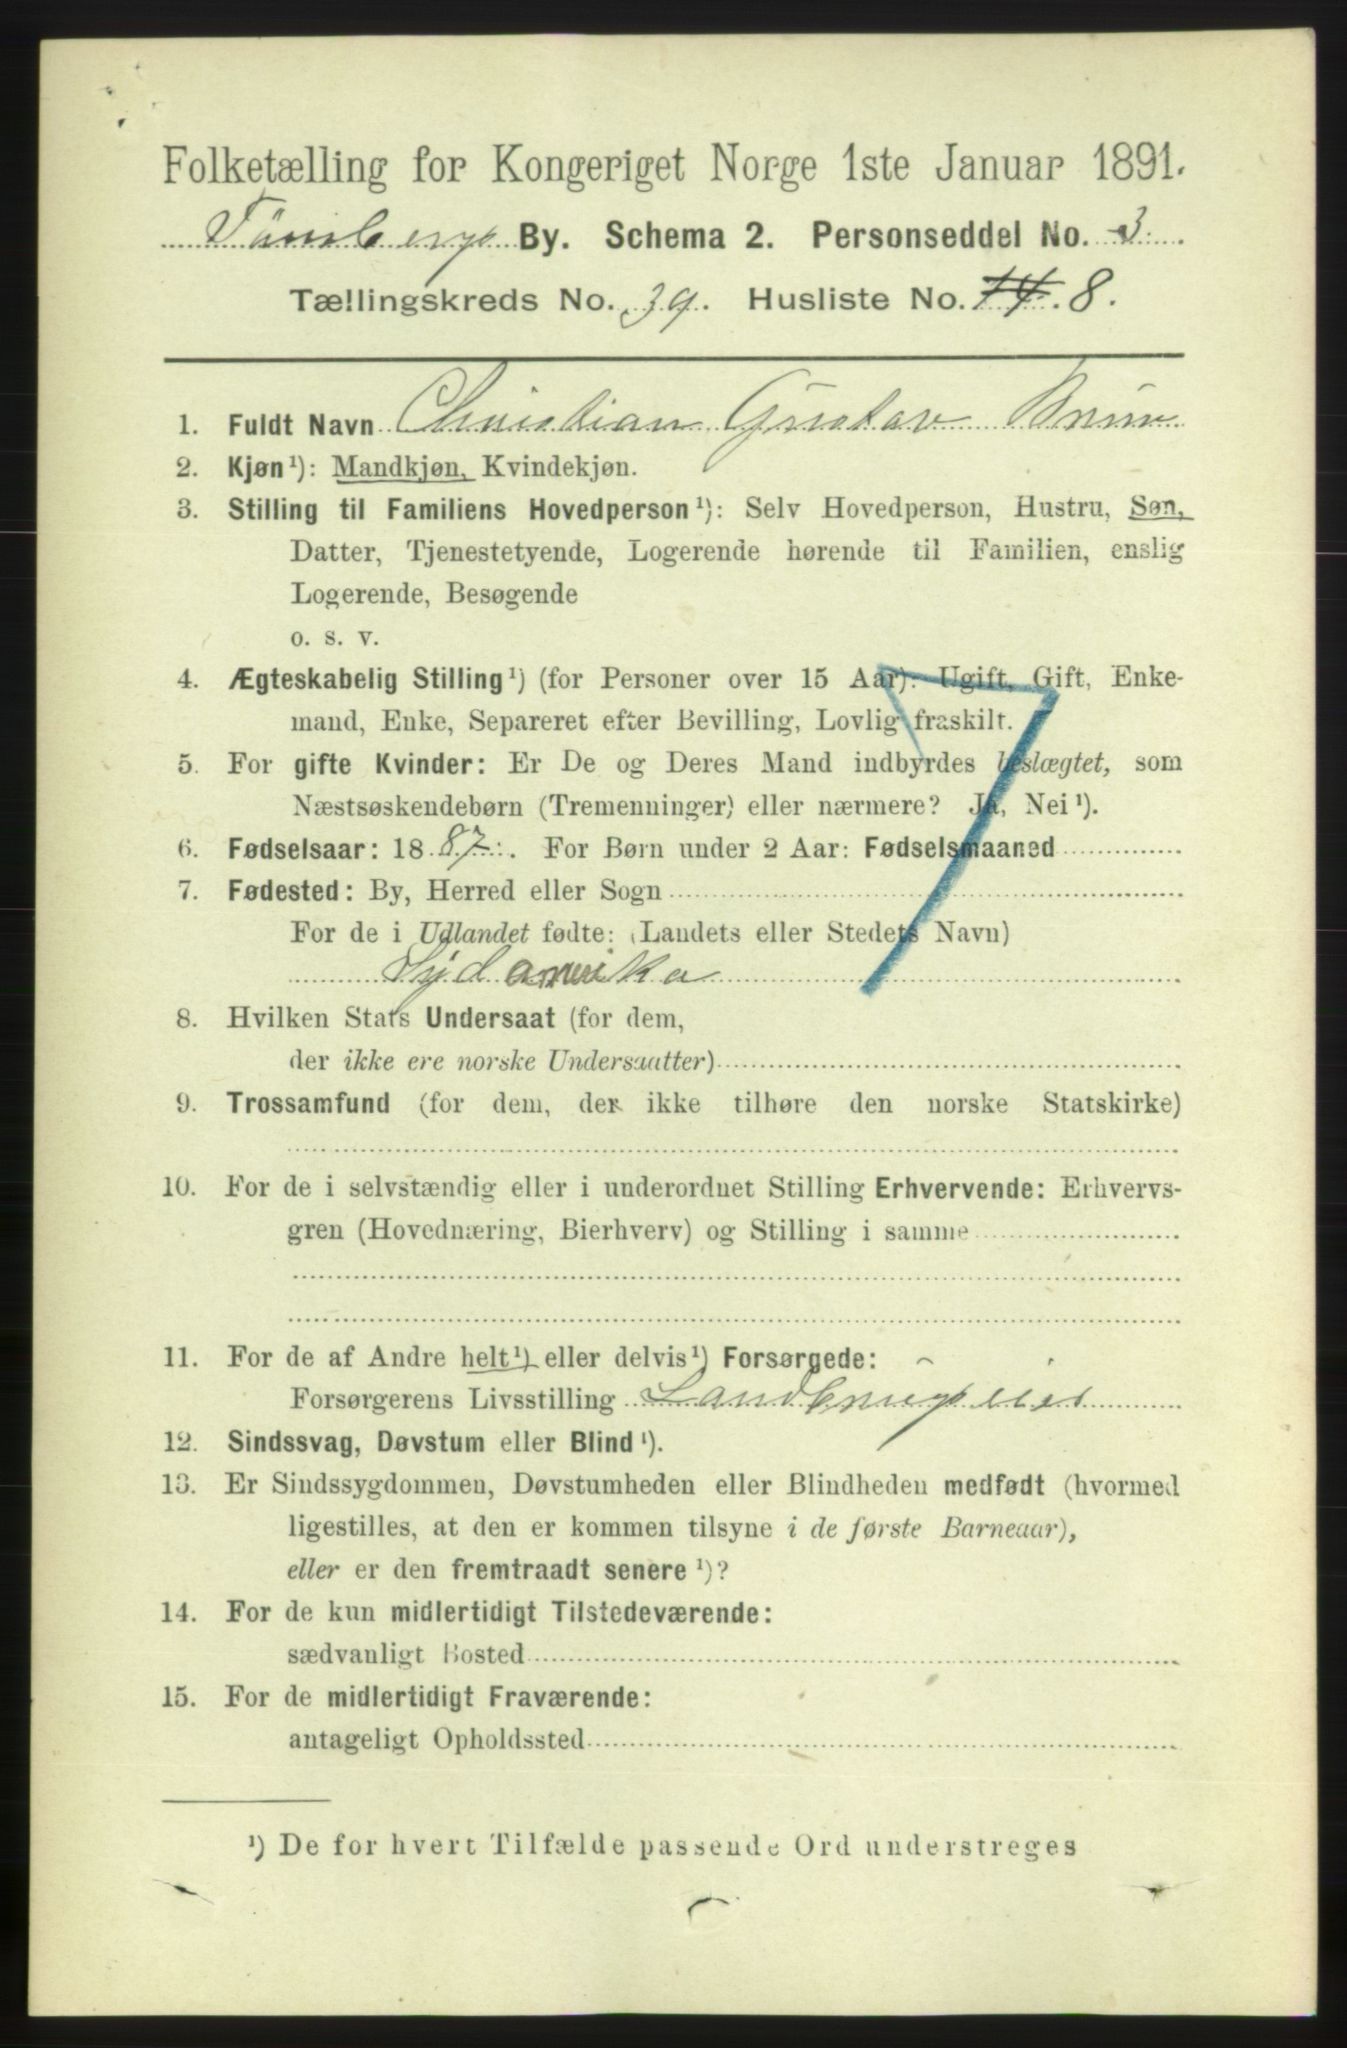 Folketælling for Kongeriget Norge 1ste Januar 1891.
Tönsbergs By. Schema 2. Personseddel No. 3.
Tællingskreds No. 39. Husliste No. 14. 8.
1. Fuldt Navn Christian Gustav Bruun
2. Kjøn¹): Mandkjøn, Kvindekjøn.
3. Stilling til Familiens Hovedperson¹): Selv Hovedperson, Hustru, Søn,
Datter, Tjenestetyende, Logerende hørende til Familien, enslig
Logerende, Besøgende
o. s. v.
4. Ægteskabelig Stilling¹) (for Personer over 15 Aar): Ugift, Gift, Enke-
mand, Enke, Separeret efter Bevilling, Lovlig fraskilt.
5. For gifte Kvinder: Er De og Deres Mand indbyrdes beslægtet, som
Næstsøskendebørn (Tremenninger) eller nærmere? Ja, Nei¹).
6. Fødselsaar: 1887. For Børn under 2 Aar: Fødselsmaaned
7. Fødested: By, Herred eller Sogn
For de i Udlandet fødte: (Landets eller Stedets Navn)
Sydamerika
8. Hvilken Stats Undersaat (for dem,
der ikke ere norske Undersaatter)
9. Trossamfund (for dem, der ikke tilhøre den norske Statskirke)
10. For de i selvstændig eller i underordnet Stilling Erhvervende: Erhvervs-
gren (Hovednæring, Bierhverv) og Stilling i samme
11. For de af Andre helt¹) eller delvis¹) Forsørgede:
Forsørgerens Livsstilling Landbrugseier
12. Sindssvag, Døvstum eller Blind¹).
13. Er Sindssygdommen, Døvstumheden eller Blindheden medfødt (hvormed
ligestilles, at den er kommen tilsyne i de første Barneaar),
eller er den fremtraadt senere¹)?
14. For de kun midlertidigt Tilstedeværende:
sædvanligt Bosted
15. For de midlertidigt Fraværende:
antageligt Opholdssted
¹) De for hvert Tilfælde passende Ord understreges